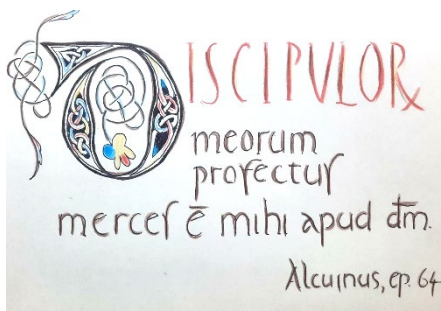 DISCIPULORꝝ
meorum
profectuſ
merceſ ē mihi apud dm̄.
Alcuinus, ep. 64